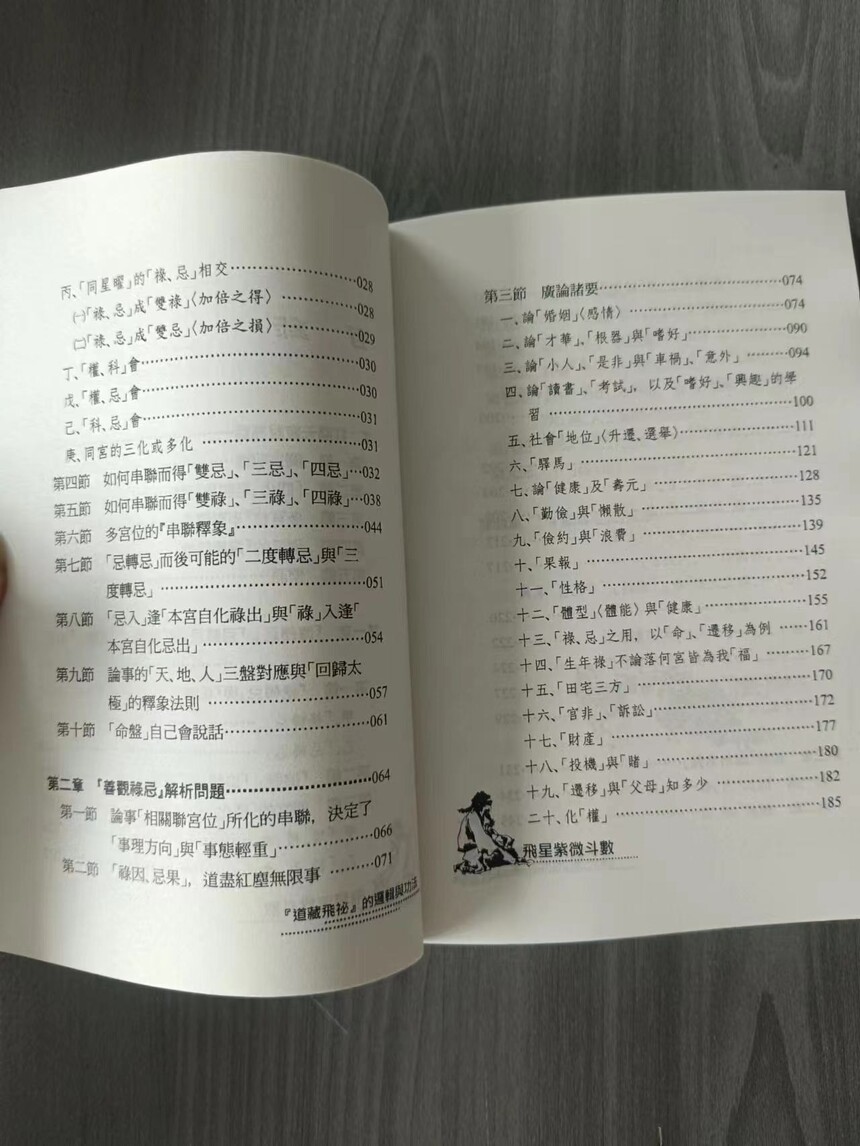 丙、「同星曜」的「祿、忌」相交……………028
㈠「祿、忌」成「雙祿」〈加倍之得〉………028
㈡「祿、忌」成「雙忌」〈加倍之損〉………029
丁、「權、科」會……………………030
戊、「權、忌」會……………………030
己、「科、忌」會……………………031
庚、同宮的三化或多化 ………………031
第四節 如何串聯而得「雙忌」、「三忌」、「四忌」…032
第五節 如何串聯而得「雙祿」、「三祿」、「四祿」…038
第六節 多宮位的『串聯釋象』……………044
第七節 「忌轉忌」而後可能的「二度轉忌」與「三
度轉忌」……………………051
第八節 「忌入」逢「本宮自化祿出」與「祿」入逢「
本宮自化忌出」………………054
第九節 論事的「天、地、人」三盤對應與「回歸太
極」的釋象法則 ………………057
第十節 「命盤」自己會說話………………061
第二章 『善觀祿忌』解析問題………………064
第一節 論事「相關聯宮位」所化的串聯，決定了
「事理方向」與「事態輕重」…………066
第二節 「祿因、忌果」，道盡紅塵無限事 ………071
『道藏飛祕』的邏輯與功法
第三節 廣論諸要……………………074
一、論「婚姻」〈感情〉………………074
二、論「才華」、「根器」與「嗜好」…………090
三、論「小人」、「是非」與「車禍」、「意外」………094
四、論「讀書」、「考試」，以及「嗜好」、「興趣」的學
習 ……………………………100
五、社會「地位」〈升遷、選舉〉……………111
六、「驛馬」……………………………121
七、論「健康」及「壽元」………………128
八、「勤儉」與「懶散」…………………135
九、「儉約」與「浪費」…………………139
十、「果報」……………………………145
十一、「性格」…………………………152
十二、「體型」〈體能〉與「健康」…………155
十三、「祿、忌」之用，以「命」、「遷移」為例 ……161
十四、「生年祿」不論落何宮皆為我「福」………167
十五、「田宅三方」……………………170
十六、「官非」、「訴訟」…………………172
十七、「財產」…………………………177
十八、「投機」與「賭」…………………180
十九、「遷移」與「父母」知多少 …………182
二十、化「權」…………………………185
飛星紫微斗數